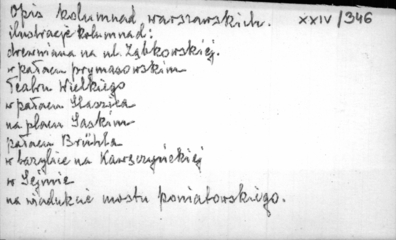 Opis kolumnad warszawskich. XXIV/346
ilustracje kolumnad:
drewniana na ul. Ząbkowskiej.
w pałacu prymasowskim
Teatru Wielkiego
w pałacu Staszica
na placu Saskim
pałacu Brühla
w bazylice na Kawęczyńskiej
w Sejmie
na wiadukcie mostu poniatowskiego.